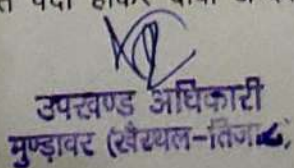 उपखण्ड अधिकारी
मुण्डावर (खैरथल-तिजा